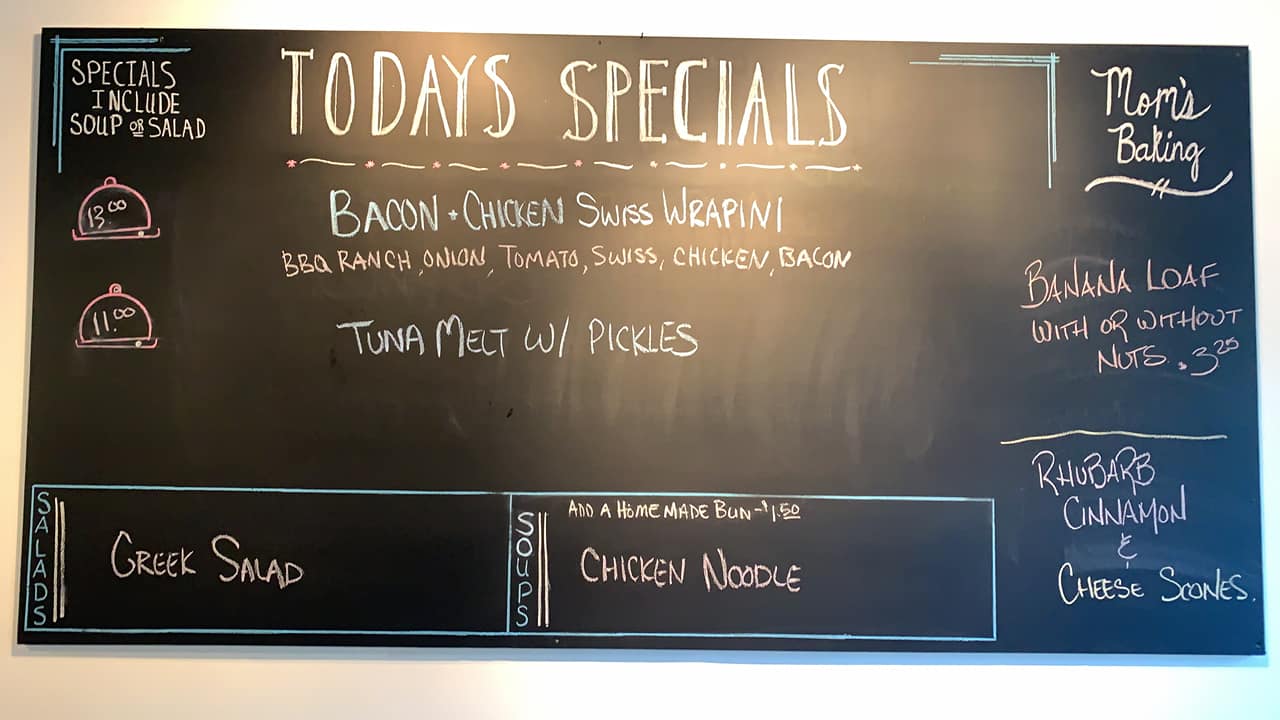 SPECIALS
INCLUDE
SOUP OR SALAD
TODAYS SPECIALS
13.00
BACON + CHICKEN SWISS WRAPINI
BBQ RANCH, ONION, TOMATO, SWISS, CHICKEN, BACON
11.00
TUNA MELT W/ PICKLES
SALADS
GREEK SALAD
SOUPS
ADD A HOMEMADE BUN - $1.50
CHICKEN NOODLE
Mom's
Baking
BANANA LOAF
WITH OR WITHOUT
NUTS . 3.25
RHUBARB
CINNAMON
&
CHEESE SCONES.